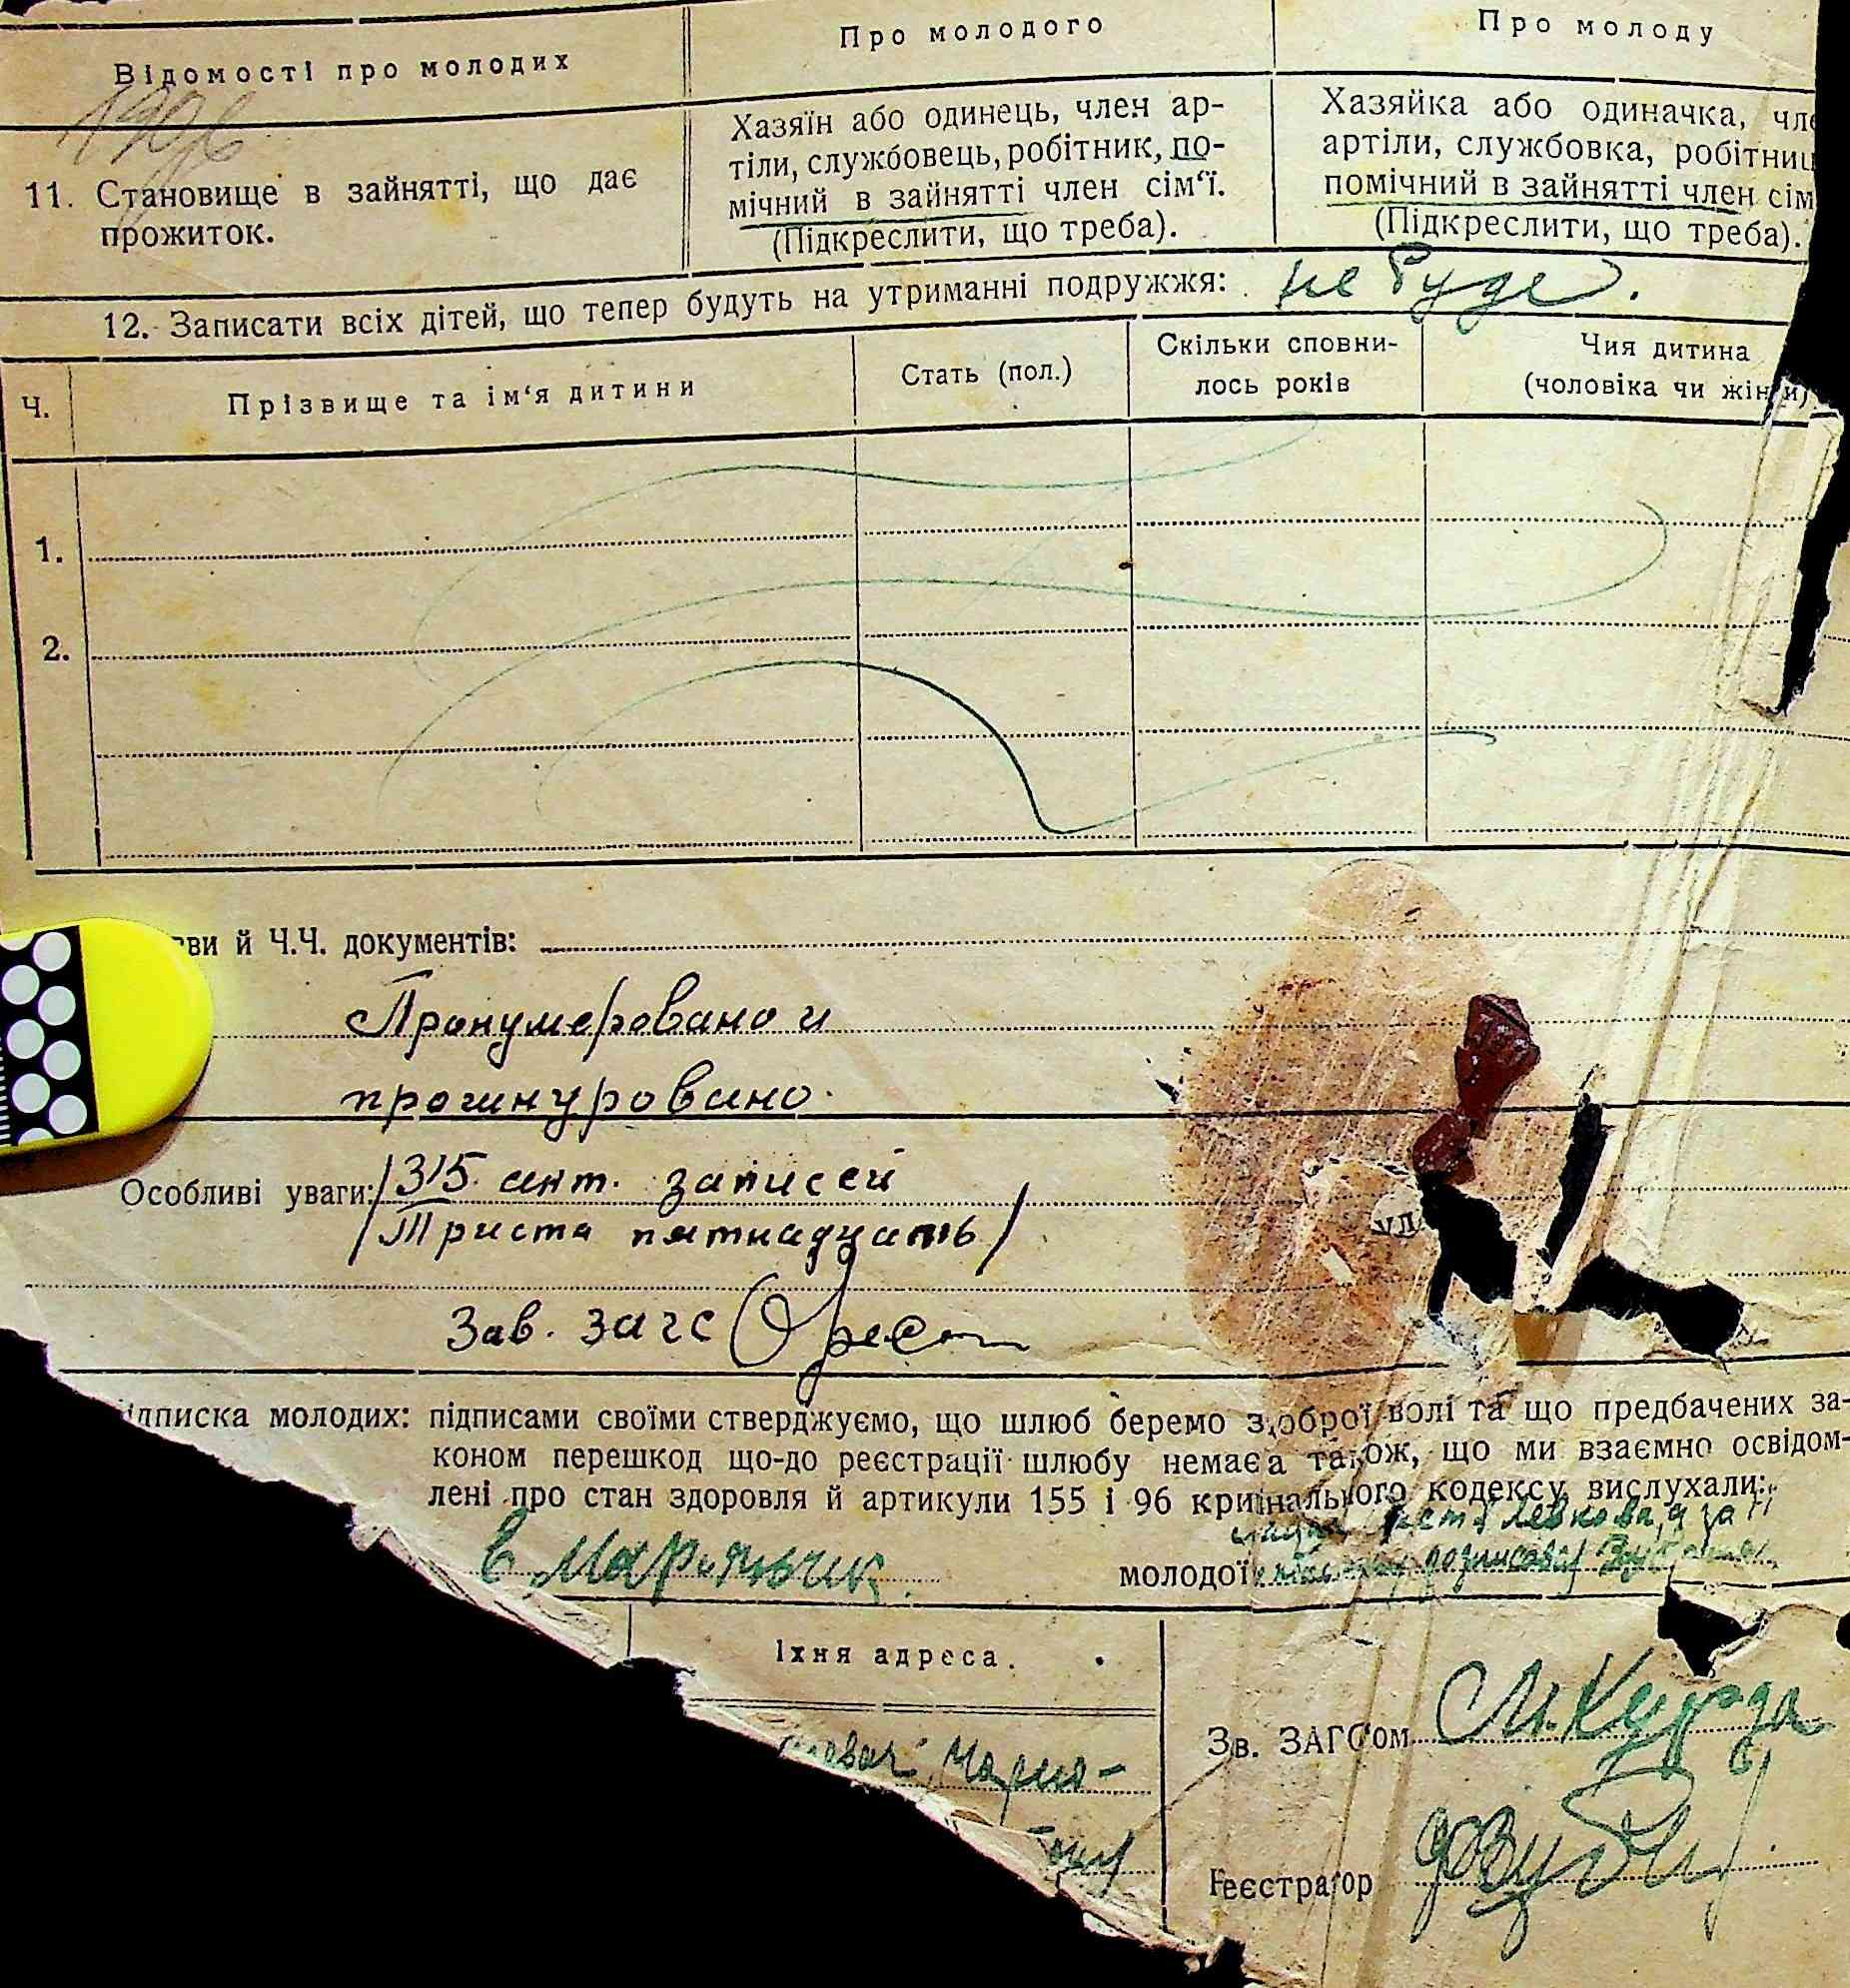 Відомості про молодих
Про молодого
Про молоду
11. Становище в зайнятті, що дає
прожиток.
Хазяїн або одинець, член ар-
тіли, службовець, робітник, по-
мічний в зайнятті член сім'ї.
(Підкреслити, що треба).
Хазяйка або одиначка, чле
артіли, службовка, робітниц
помічний в зайнятті член сім
(Підкреслити, що треба).
12. Записати всіх дітей, що тепер будуть на утриманні подружжя: не буде.
Ч.
Прізвище та ім'я дитини
Стать (пол.)
Скільки сповни-
лось років
Чия дитина
(чоловіка чи жінки)
1.
2.
зви й Ч.Ч. документів:
Пронумеровано и
прошнуровано.
Особливі уваги: /315 акт. записей
/Триста пятнадцать/
Зав. загс
ідписка молодих: підписами своїми стверджуємо, що шлюб беремо з доброї волі та що предбачених за-
коном перешкод що-до реєстрації шлюбу немає а також, що ми взаємно освідом-
лені про стан здоровля й артикули 155 і 96 кримінального кодексу вислухали:
молодої
Їхня адреса.
Зв. ЗАГС'ом
Реєстратор